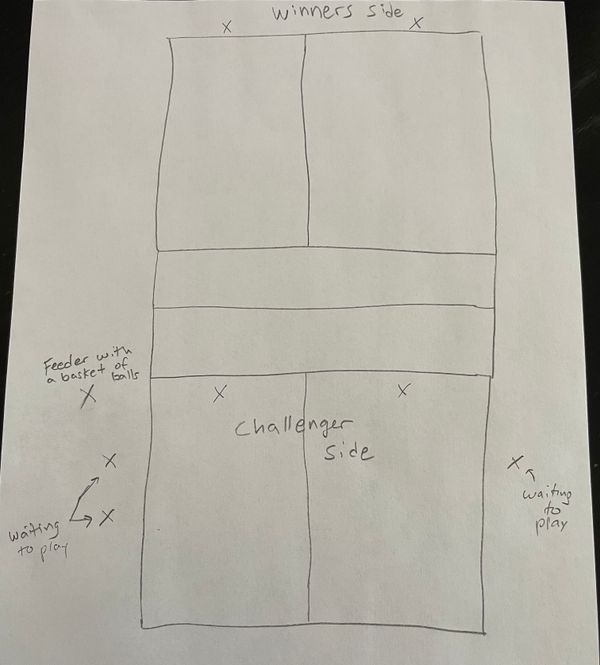 Winners side
X X
Feeder with
a basket of
balls
X
X X
Challenger
side
X
X
waiting
to play
X
waiting
to
play